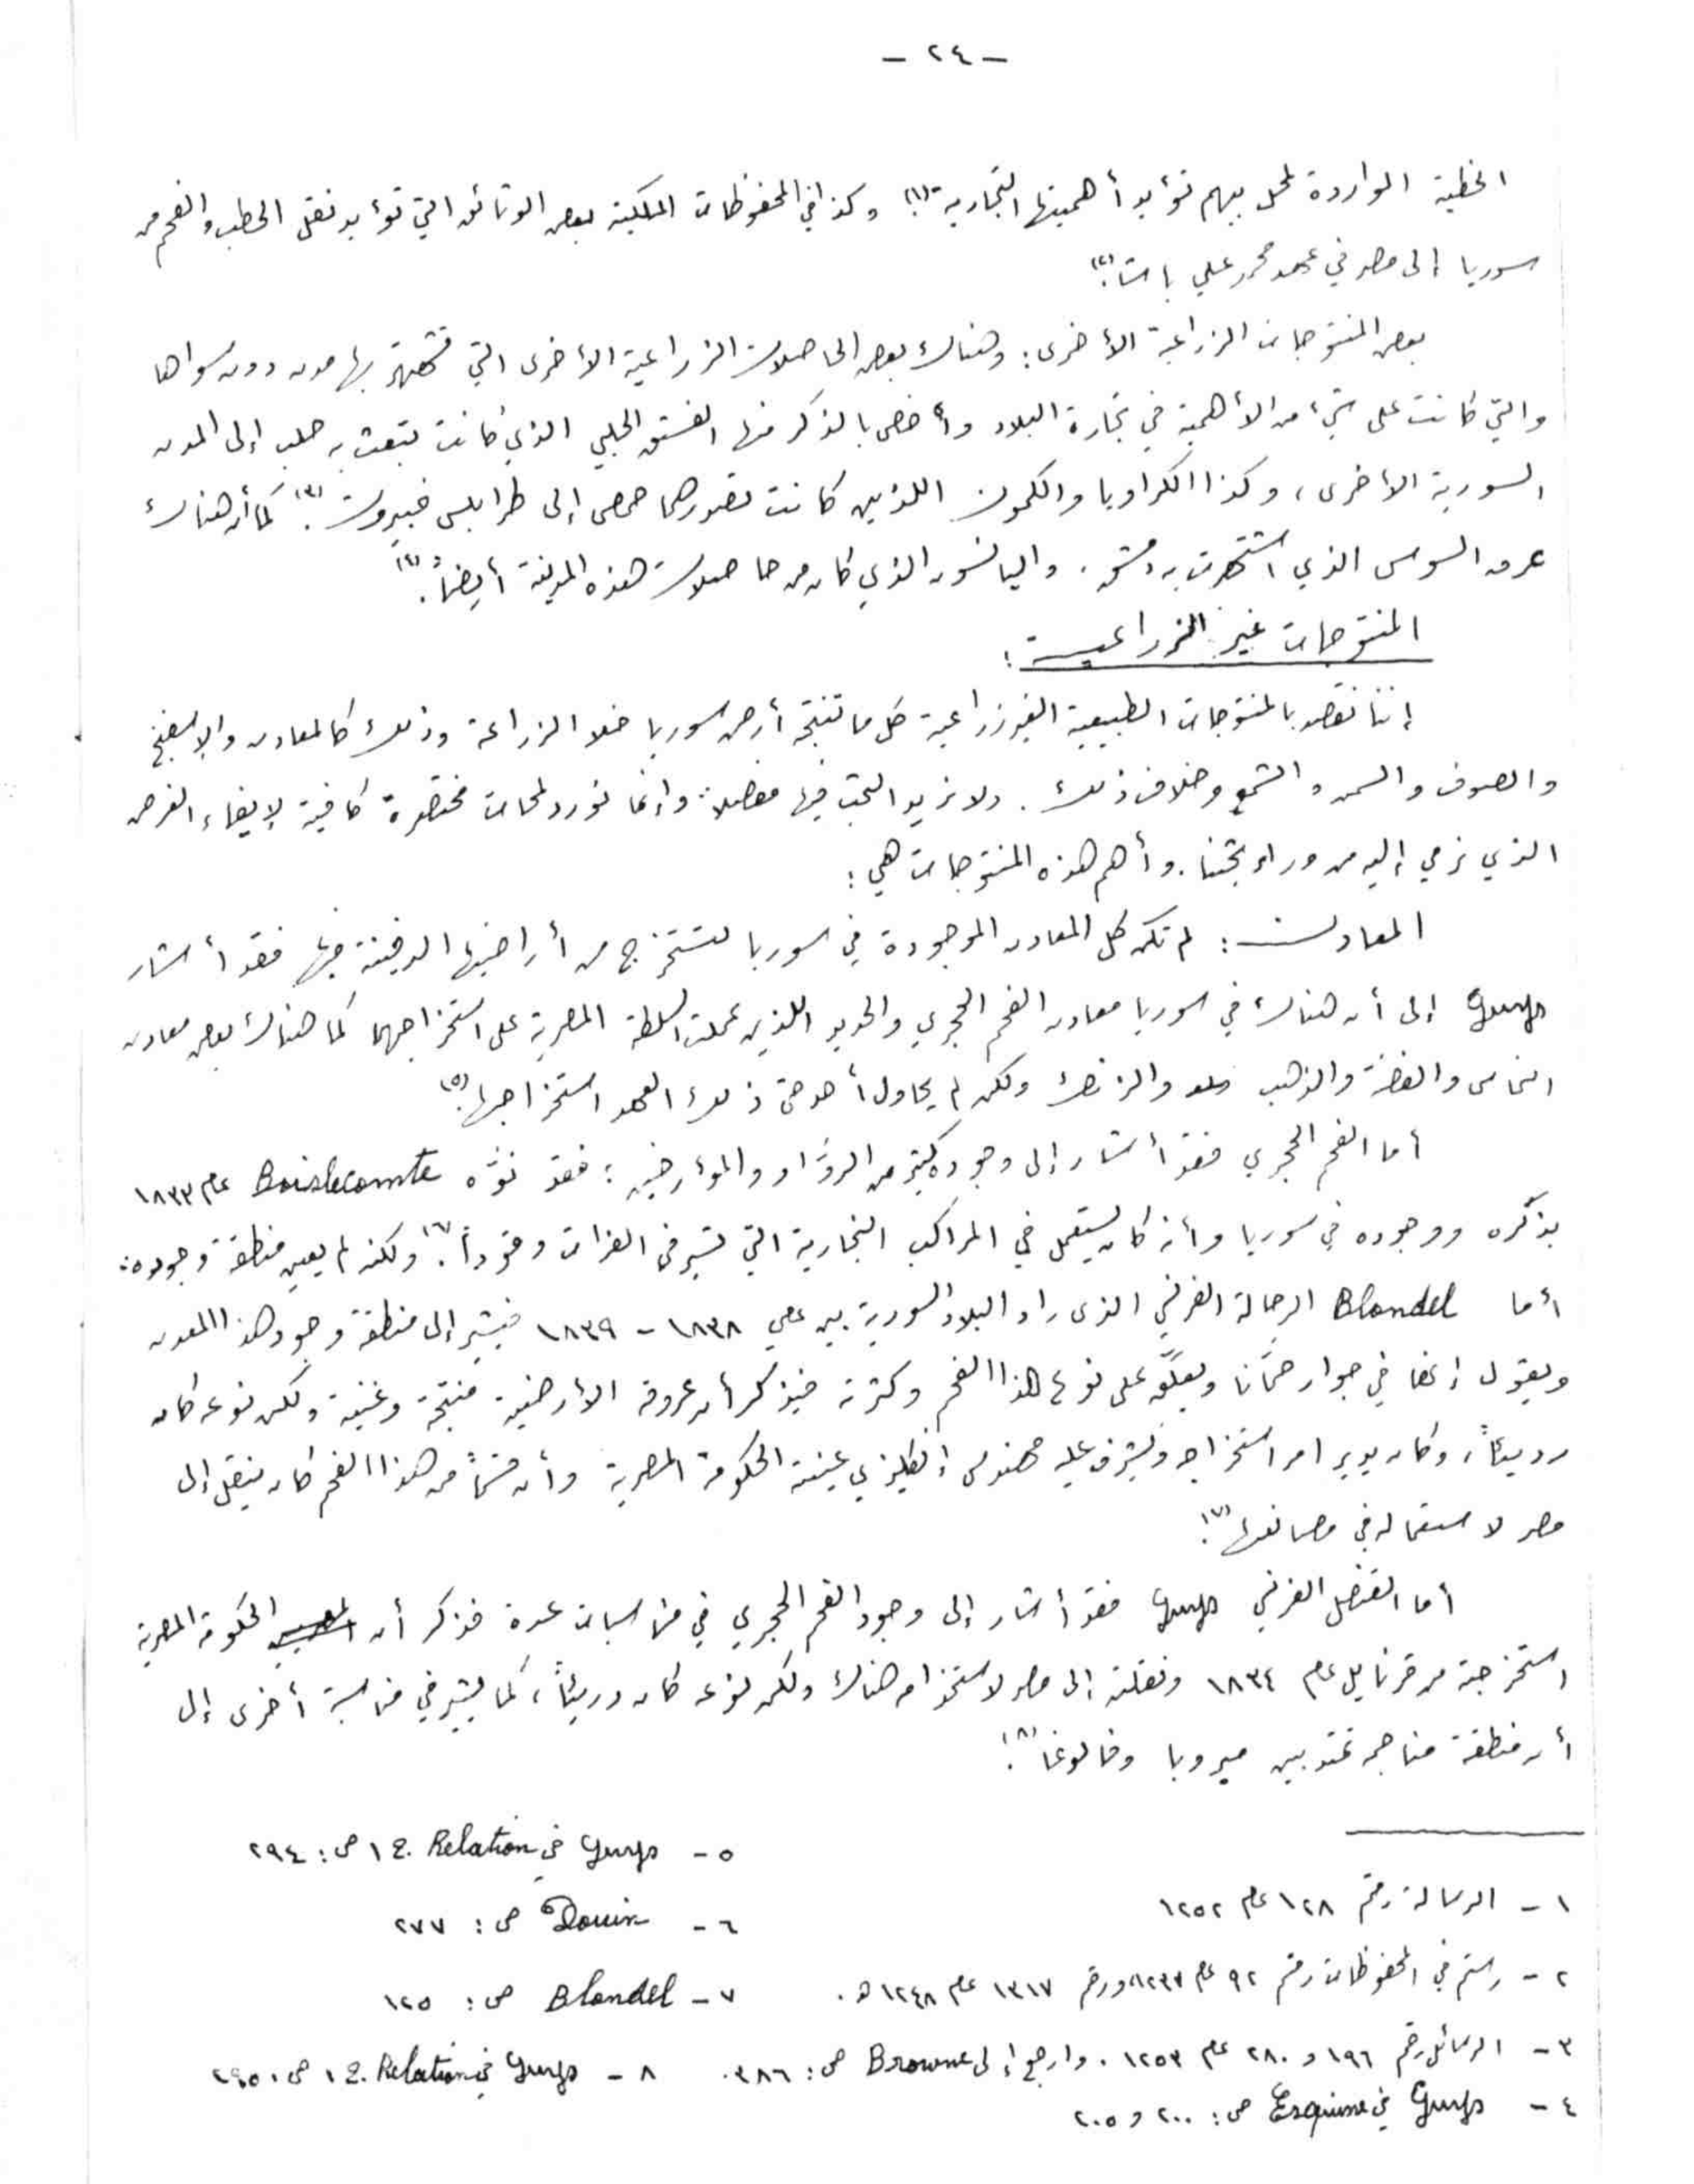 - ٢٤ -
الخطية الواردة لمحل بيهم تؤيد أهميتها التجارية (١). وكذا في المحفوظات الملكية بعض الوثائق التي تؤيد نقل الحطب والفحم من
سوريا إلى مصر في عهد محمد علي باشا (٢).
بعض المنتوجات الزراعية الأخرى: وهناك بعض الحاصلات الزراعية الأخرى التي تشتهر بها مدن دون سواها
والتي كانت على شيء من الأهمية في تجارة البلاد وأخص بالذكر منها الفستق الحلبي الذي كانت تبعث به حلب إلى المدن
السورية الأخرى، وكذا الكراويا والكمون اللذين كانت تصدرهما حمص إلى طرابلس فبيروت (٣). كما أن هناك
عرق السوس الذي اشتهرت به دمشق. واليانسون الذي كان من حاصلات هذه المدينة أيضاً (٤).
المنتوجات غير الزراعية :
إننا نقصد بالمنتوجات الطبيعية الغير زراعية كل ما تنتجه أرض سوريا خلا الزراعة وذلك كالمعادن والإسفنج
والصوف والسمن والشمع وخلاف ذلك. ولا نريد البحث فيها مفصلاً وإنما نورد لمحات مختصرة كافية لإيفاء الغرض
الذي نرمي إليه من وراء بحثنا. وأهم هذه المنتوجات هي :
المعادن : لم تكن كل المعادن الموجودة في سوريا تستخرج من أراضيها الدفينة فيها فقد أشار
Guys إلى أن هناك في سوريا معادن الفحم الحجري والحديد اللذين عملت السلطة المصرية على استخراجهما كما هناك بعض معادن
النحاس والفضة والذهب والزنك ولكن لم يحاول أحد حتى ذلك العهد استخراجها (٥).
أما الفحم الحجري فقد أشار إلى وجوده كثير من الروَّاد والمؤرخين : فقد نوَّه Boislecomte عام ١٨٣٣
بذكره ووجوده في سوريا وأنه كان يستعمل في المراكب التجارية التي تسير في الفرات وقوداً (٦). ولكنه لم يعين منطقة وجوده.
أما Blondel الرحالة الفرنسي الذي راد البلاد السورية بين عامي ١٨٣٨ - ١٨٣٩ فيشير إلى منطقة وجود هذا المعدن
ويقول إنها في جوار حمَّانا ويعلّق على نوع هذا الفحم وكثرته فيذكر أن عروقه الأرضية منتجة وغنية ولكن نوعه كان
رديئاً، وكان يدير امر استخراجه ويشرف عليه مهندس إنكليزي عينته الحكومة المصرية وأن قسماً من هذا الفحم كان ينقل إلى
مصر لاستعماله في مصانعها (٧).
أما القنصل الفرنسي Guys فقد أشار إلى وجود الفحم الحجري في مناسبات عدة فذكر أن الحكومة المصرية
استخرجته من قرنايل عام ١٨٣٤ ونقلته إلى مصر لاستخدامه هناك ولكن نوعه كان رديئاً، كما يشير في مناسبة أخرى إلى
أن منطقة مناجمه تمتد بين ميروبا وفالوغا (٨).
١ - الرسالة رقم ١٢٨ عام ١٢٥٢
٢ - رستم في المحفوظات رقم ٩٢ عام ١٢٣٧ ورقم ١٣١٧ عام ١٢٤٨ هـ.
٣ - الرسائل رقم ١٩٦ و ٢٨٠ عام ١٢٥٣. وارجع إلى Browne ص: ٣٨٦.
٤ - Guys في Esquisse ص: ٢٠٠ و ٢٠٥
٥ - Guys في Relation ج. ١ ص: ٢٩٤
٦ - Douin ص: ٢٧٧
٧ - Blondel ص: ١٢٥
٨ - Guys في Relation ج. ١ ص. ٢٩٥